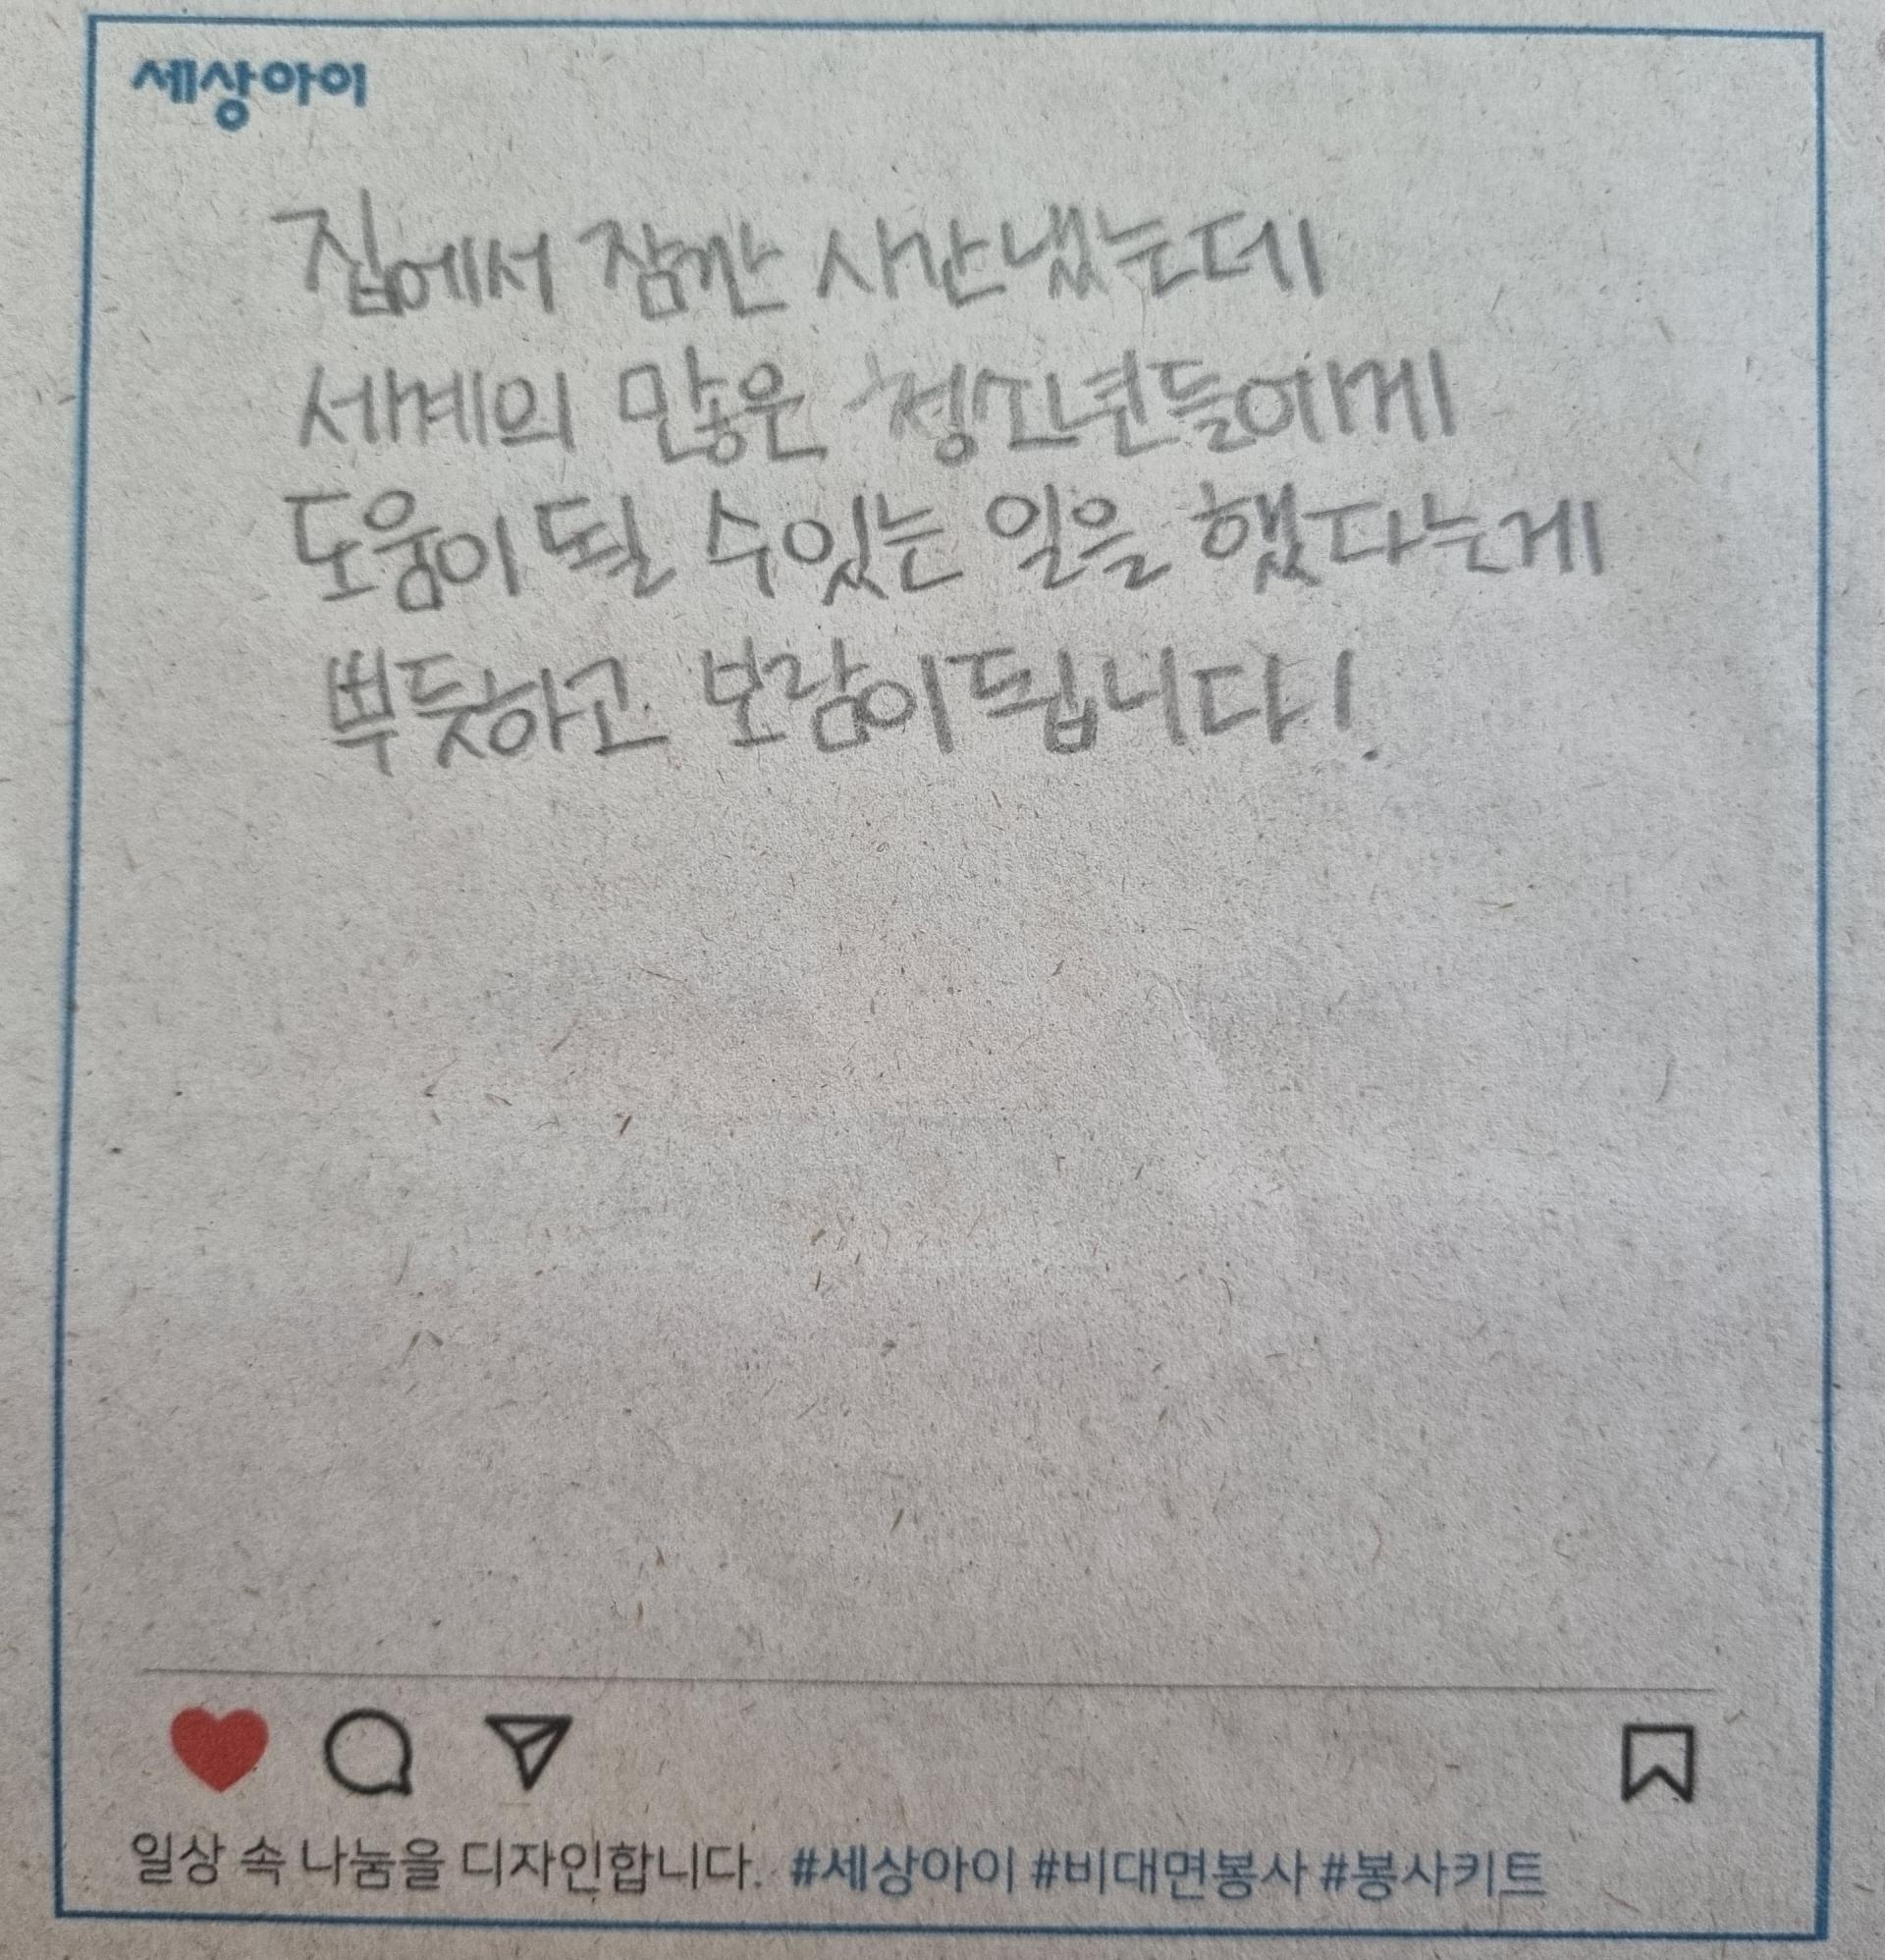 세상아이
집에서 잠깐 시간냈는데
세계의 많은 청소년들에게
도움이 될 수있는 일을 했다는게
뿌듯하고 보람이됩니다!
일상 속 나눔을 디자인합니다. #세상아이 #비대면봉사 #봉사키트